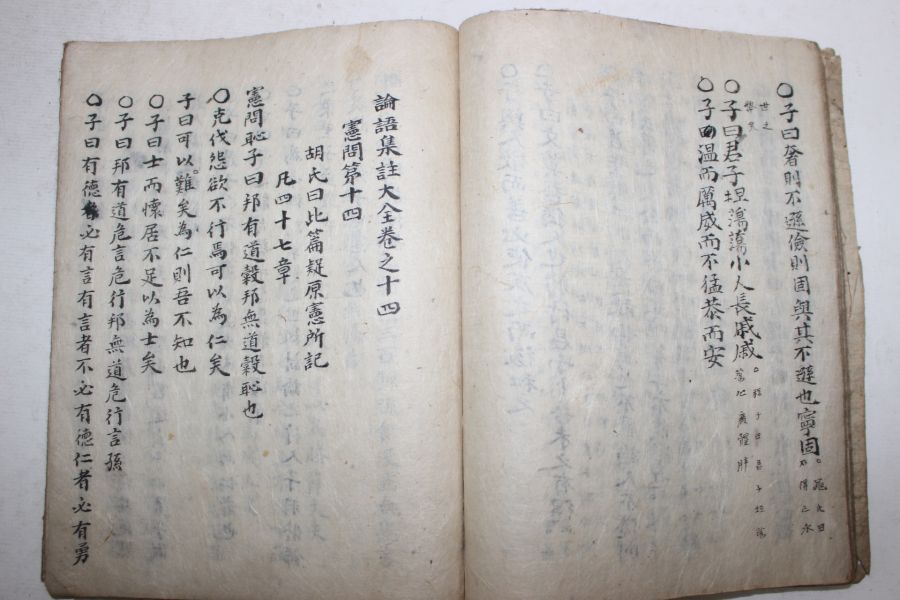 ○子曰奢則不遜儉則固與其不遜也寧固
○子曰君子坦蕩蕩小人長戚戚
程子曰君子坦蕩
心廣體胖
○子溫而厲威而不猛恭而安
論語集註大全卷之十四
憲問第十四
胡氏曰此篇疑原憲所記
凡四十七章
憲問恥子曰邦有道穀邦無道穀恥也
○克伐怨欲不行焉可以為仁矣
子曰可以難矣為仁則吾不知也
○子曰士而懷居不足以為士矣
○子曰邦有道危言危行邦無道危行言孫
○子曰有德必有言有言者不必有德仁者必有勇